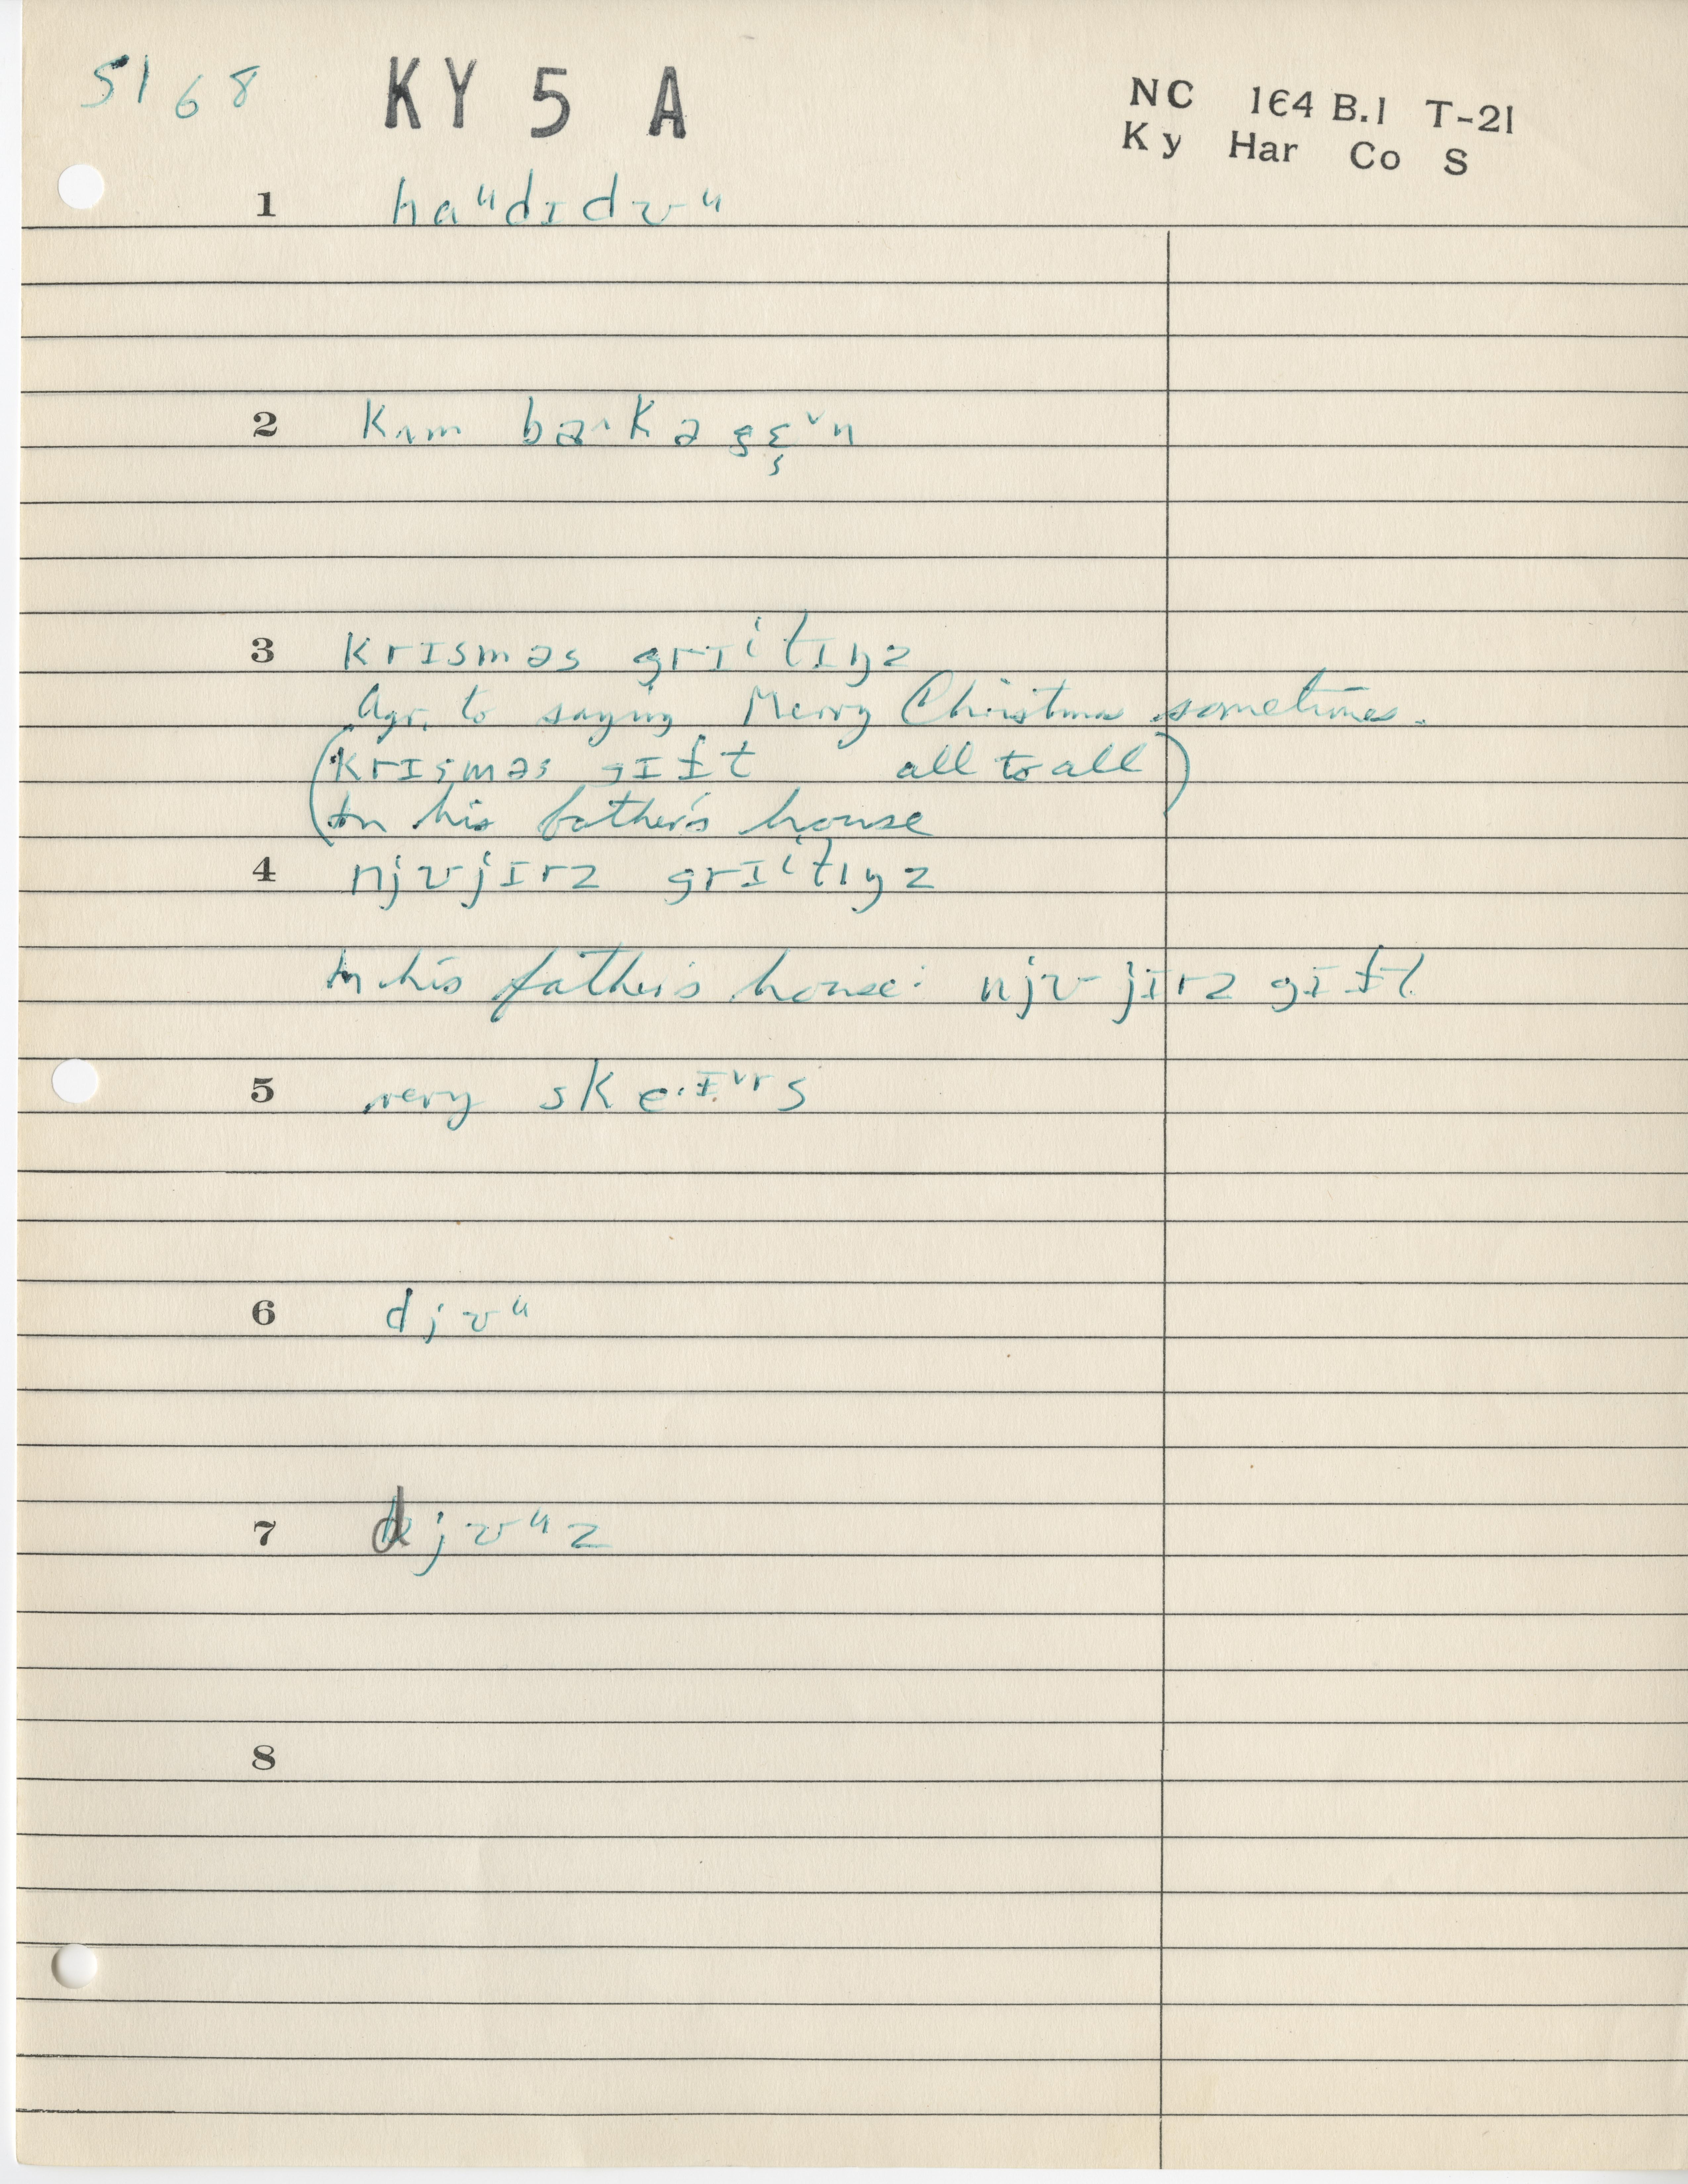 5168 KY 5 A
NC 164 B.1 T-21
Ky Har Co S
1 haᵘdɪdʊᵘ
2 kʌm bæ^k ə gɛ̨ˇn
3 krɪsməs grɪⁱtɪŋz
Agr. to saying Merry Christmas sometimes.
(krɪsməs gɪft all to all)
In his father's house
4 njʊjɪrz grɪⁱtɪŋz
In his father's house: njʊjɪrz gɪft
5 very ske·ɪˇrs
6 djʊᵘ
7 djʊᵘz
8